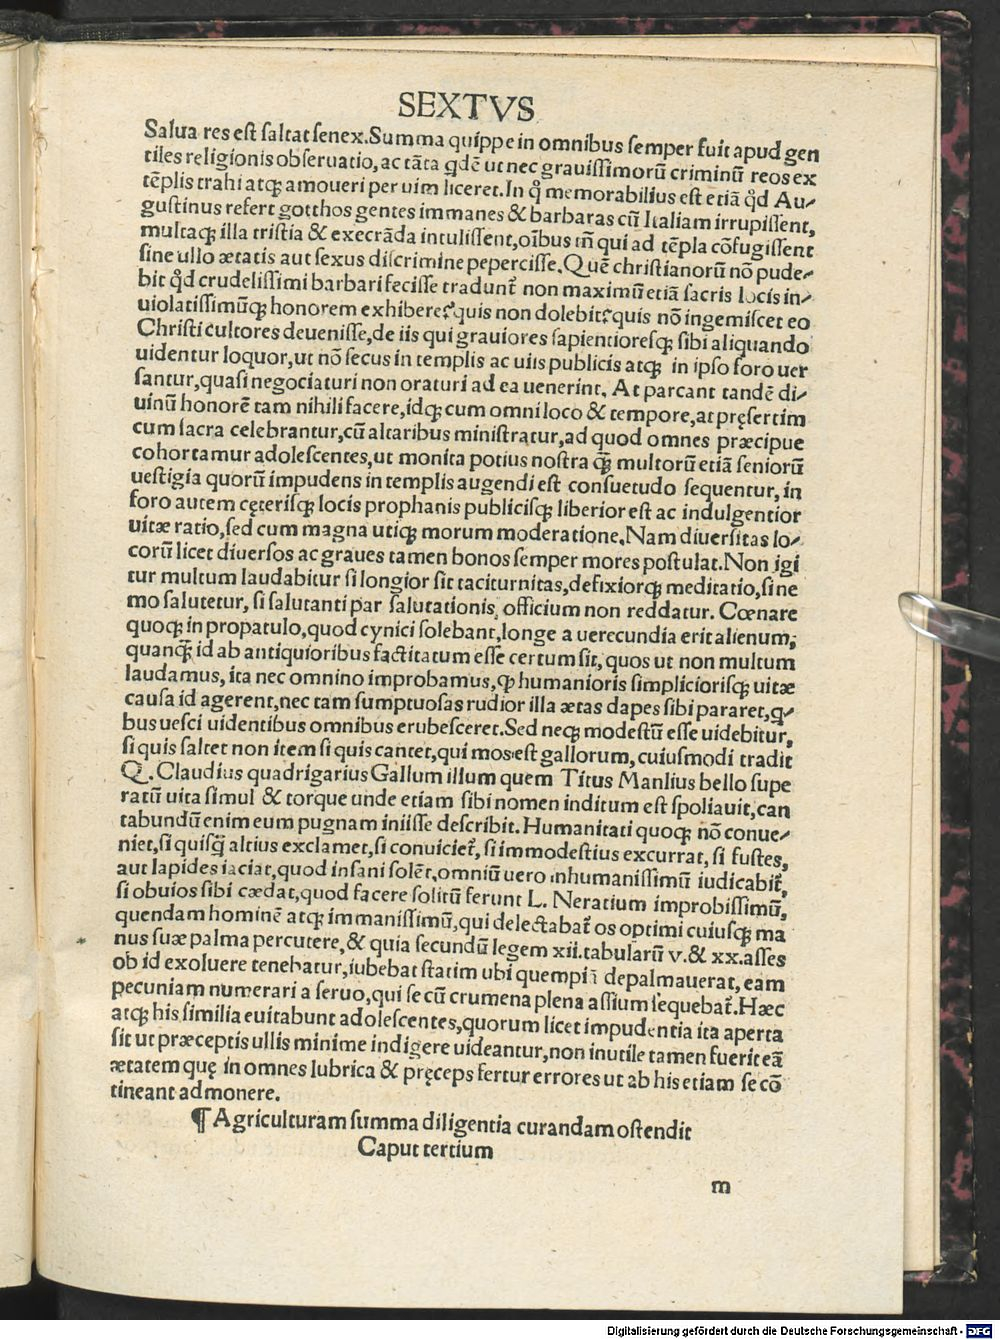 SEXTVS
Salua res est saltat senex. Summa quippe in omnibus semper fuit apud gen
tiles religionis obseruatio, ac tāta qdē ut nec grauissimorū criminū reos ex
tēplis trahi atqꝫ amoueri per uim liceret. In qͦ memorabilius est etiā qͦd Au⸗
gustinus refert gotthos gentes immanes & barbaras cū Italiam irrupissent,
multaqꝫ illa tristia & execrāda intulissent, oībus tñ qui ad tēpla cōfugissent
sine ullo ætatis aut sexus discrimine pepercisse. Quē christianorū nō pude⸗
bit qͦd crudelissimi barbari fecisse tradunt̄ non maximū etiā sacris locis in⸗
uiolatissimūqꝫ honorem exhibere? quis non dolebit? quis nō ingemiscet eo
Christi cultores deuenisse, de iis qui grauiores sapientioresqꝫ sibi aliquando
uidentur loquor, ut nō secus in templis ac uiis publicis atqꝫ in ipso foro uer
santur, quasi negociaturi non oraturi ad ea uenerint. At parcant tandē di⸗
uinū honorē tam nihili facere, idqꝫ cum omni loco & tempore, at pręsertim
cum sacra celebrantur, cū altaribus ministratur, ad quod omnes præcipue
cohortamur adolescentes, ut monita potius nostra qꝫ̄ multorū etiā seniorū
uestigia quorū impudens in templis augendi est consuetudo sequentur, in
foro autem cęterisqꝫ locis prophanis publicisqꝫ liberior est ac indulgentior
uitæ ratio, sed cum magna utiqꝫ morum moderatione. Nam diuersitas lo⸗
corū licet diuersos ac graues tamen bonos semper mores postulat. Non igi
tur multum laudabitur si longior sit taciturnitas, defixiorqꝫ meditatio, si ne
mo salutetur, si salutanti par salutationis officium non reddatur. Cœnare
quoqꝫ in propatulo, quod cynici solebant, longe a uerecundia erit alienum,
quanqꝫ̄ id ab antiquioribus factitatum esse certum sit, quos ut non multum
laudamus, ita nec omnino improbamus, ꝙ humanioris simpliciorisqꝫ uitæ
causa id agerent, nec tam sumptuosas rudior illa ætas dapes sibi pararet, q⸗
bus uesci uidentibus omnibus erubesceret. Sed neqꝫ modestū esse uidebitur,
si quis saltet non item si quis cantet, qui mos est gallorum, cuiusmodi tradit
Q. Claudius quadrigarius Gallum illum quem Titus Manlius bello supe
ratū uita simul & torque unde etiam sibi nomen inditum est spoliauit, can
tabundū enim eum pugnam iniisse describit. Humanitati quoqꝫ nō conue⸗
niet, si quisq̄ altius exclamet, si conuiciet̄, si immodestius excurrat, si fustes,
aut lapides iaciat, quod insani solēt, omniū uero inhumanissimū iudicabit̄,
si obuios sibi cædat, quod facere solitū ferunt L. Neratium improbissimū,
quendam hominē atqꝫ immanissimū, qui delectabat̄ os optimi cuiusqꝫ ma
nus suæ palma percutere, & quia secundū legem xii. tabularū v. & xx. asses
ob id exoluere tenebatur, iubebat statim ubi quempiā depalmauerat, eam
pecuniam numerari a seruo, qui se cū crumena plena assium sequebat̄. Hæc
atqꝫ his similia euitabunt adolescentes, quorum licet impudentia ita aperta
sit ut præceptis ullis minime indigere uideantur, non inutile tamen fuerit eā
ætatem quę in omnes lubrica & pręceps fertur errores ut ab his etiam se cō
tineant admonere.
¶ Agriculturam summa diligentia curandam ostendit
Caput tertium
m
Digitalisierung gefördert durch die Deutsche Forschungsgemeinschaft - DFG